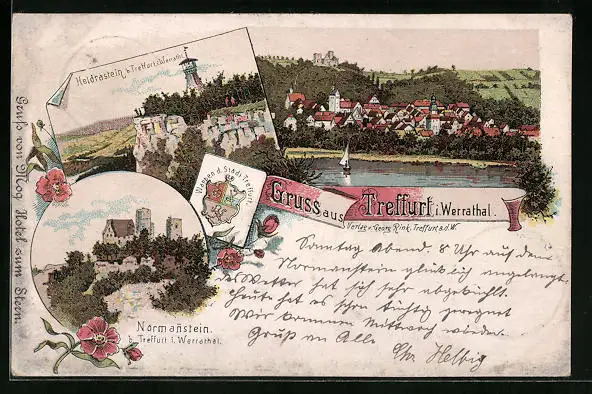 Heldrastein b. Treffurt i. Werrathal
Wappen d. Stadt Treffurt
Gruss aus Treffurt i. Werrathal.
Verlag v. Georg Rink, Treffurt a.d.W.
Gruß von Mog. Hotel zum Stern.
Sonntag Abend 8 Uhr auf dem
Normanstein glücklich angelangt.
Wetter hat sich sehr abgekühlt.
heute hat es schon tüchtig geregnet
Wir kommen Mittwoch wieder.
Gruß an Alle
Chr. Helbig
Normanstein.
b. Treffurt i. Werrathal.